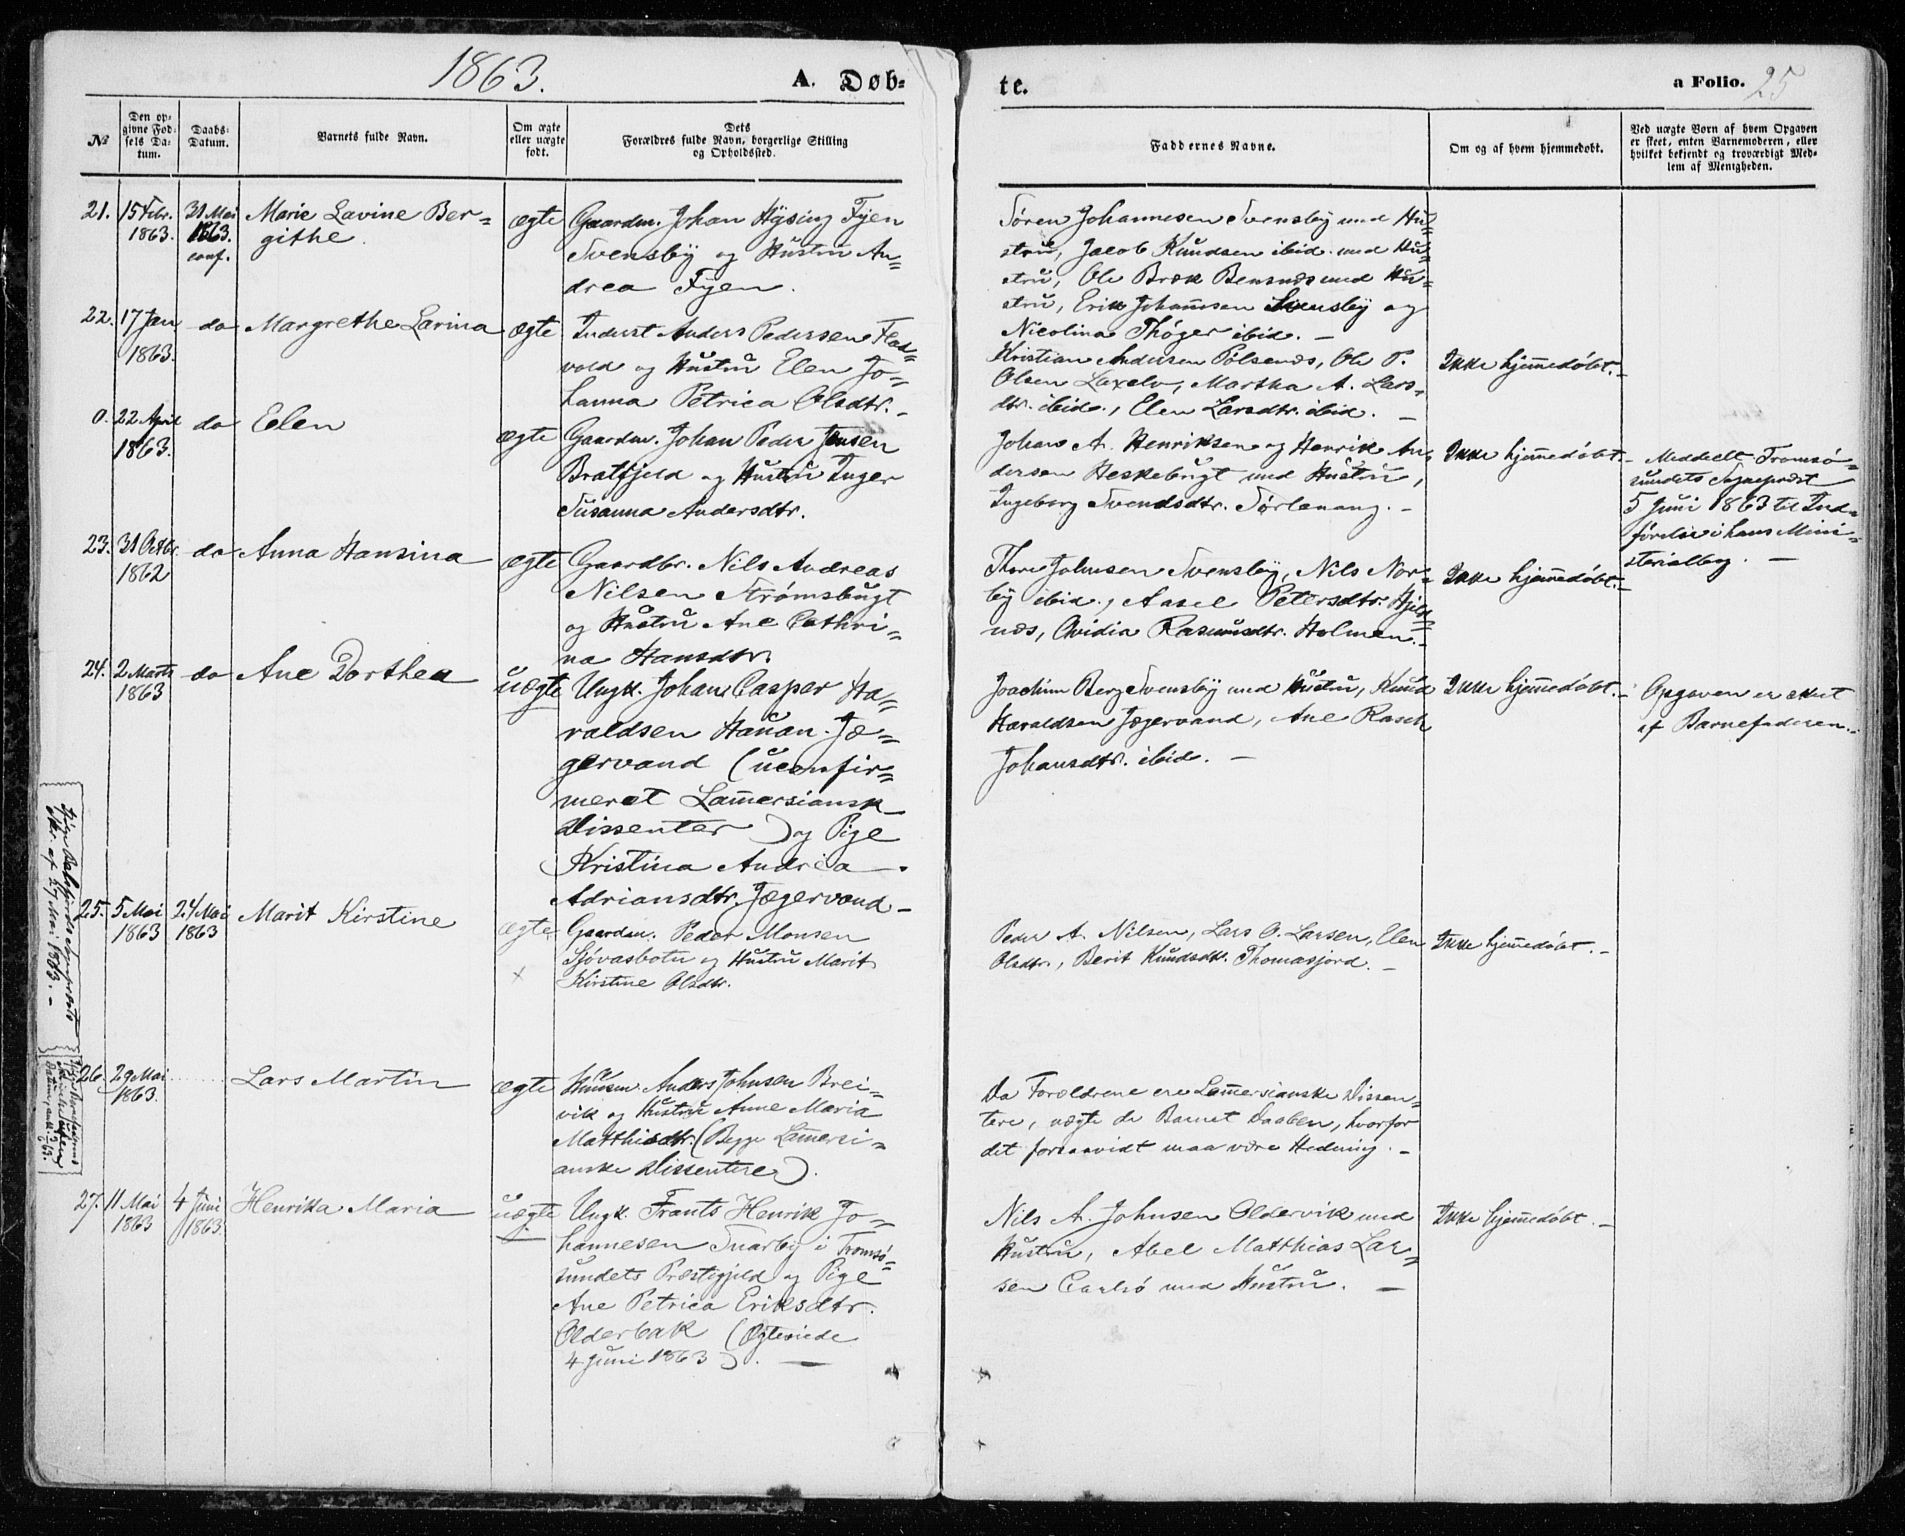 1863.
A. Døb-
te.
a Folio. 25
№
Den op-
givne Fød-
sels Da-
tum.
Daabs-
Datum.
Barnets fulde Navn.
Om ægte
eller uægte
født.
Dets
Forældres fulde Navn, borgerlige Stilling
og Opholdssted.
Faddernes Navne.
Om og af hvem hjemmedøbt.
Ved uægte Børn af hvem Opgaven
er skeet, enten Barnemoderen, eller
hvilket bekjendt og troværdigt Med-
lem af Menigheden.
21.
15 Febr.
1863.
31 Mai
1863.
conf.
Marie Lavine Ber-
githe.
ægte
Gaardm. Johan Hysing Fyen
Svensby og Hustru An-
drea Fyen.
Søren Johannesen Svensby med Hu-
stru, Jacob Knudsen ibid. med Hu-
stru, Ole Bræk Bensnæs med Hu-
stru, Erik Johannsen Svensby og
Nicolina Thøger ibid. –
22.
17 Jan
1863.
do
Margrethe Larina
ægte
Inderst Anders Pedersen Fled-
vold og Hustru Elen Jo-
hanna Petrica Olsdtr. –
Kristian Andersen Pølsenæs, Ole P.
Olsen Laxelv, Martha A. Lars-
dtr. ibid., Elen Larsdtr. ibid. –
Ikke hjemedøbt. –
0.
22 April
1863.
do
Elen
ægte
Gaardm. Johan Peder Jensen
Bratfjeld og Hustru Inger
Susanna Andersdtr.
Johan A. Henriksen og Henrik An-
dersen Heskebugt med Hustru,
Ingeborg Svendsdtr. Sørlenang. –
Ikke hjemedøbt. –
Meddelt Tromsø-
sundets Sognepræst
5 Juni 1863 til Ind-
førelse i hans Mini-
sterialbog. –
23.
31 Octbr.
1862
do
Anna Hansina
ægte
Gaardbr. Nils Andreas
Nilsen Strømsbugt
og Hustru Ane Cathri-
na Hansdtr.
Thore Johnsen Svensby, Nils Nor-
by ibid., Aasel Petersdtr. Hjels-
næs, Ovidia Rasmusdtr. Holmen.
Ikke hjemedøbt. –
24.
2 Marts
1863
do
Ane Dorthea
uægte
Ungk. Johan Casper Ha-
raldsen Hauan. Jæ-
gervand (uconfir-
meret Lamersiansk
Dissenter) og Pige
Kristina Andrea
Adriansdtr. Jægervand –
Joachim Berg Svensby med Hustru, Knud
Haraldsen Jægervand, Ane Rasch
Johansdtr. ibid. –
Ikke hjemedøbt. –
Opgaven er skeet
af Barnefaderen. –
25.
5 Mai
1863
24 Mai
1863
Marit Kirstine
ægte
Gaardm. Peder Monsen
Sjøvasbotn og Hustru Marit
Kirstine Olsdtr.
Peder A. Nilsen, Lars O. Larsen, Elen
Olsdtr., Berit Knudsdtr. Thomasjord. –
Ikke hjemedøbt. –
26.
29 Mai
1863.
Lars Martin
ægte
Huusm. Anders Johnsen Brei-
vik og Hustru Anne Maria
Matthisdtr. (Begge Lamersi-
anske Dissentere).
Da Forældrene ere Lamersianske Dissen-
tere, nægte de Barnet Daaben, hvorfor
det forsaavidt maa være Hedning. –
27.
11 Mai
1863
4 Juni
1863.
Henrikka Maria
uægte
Ungk. Frants Henrik Jo-
hannesen Snarby i Tromsø-
sundets Præstegjeld og Pige
Ane Petrica Eriksdtr.
Olderbak (Ægteviede
4 Juni 1863). –
Nils A. Johnsen Oldervik med
Hustru, Abel Matthias Lar-
sen Carlsø med Hustru. –
Ikke hjemedøbt. –